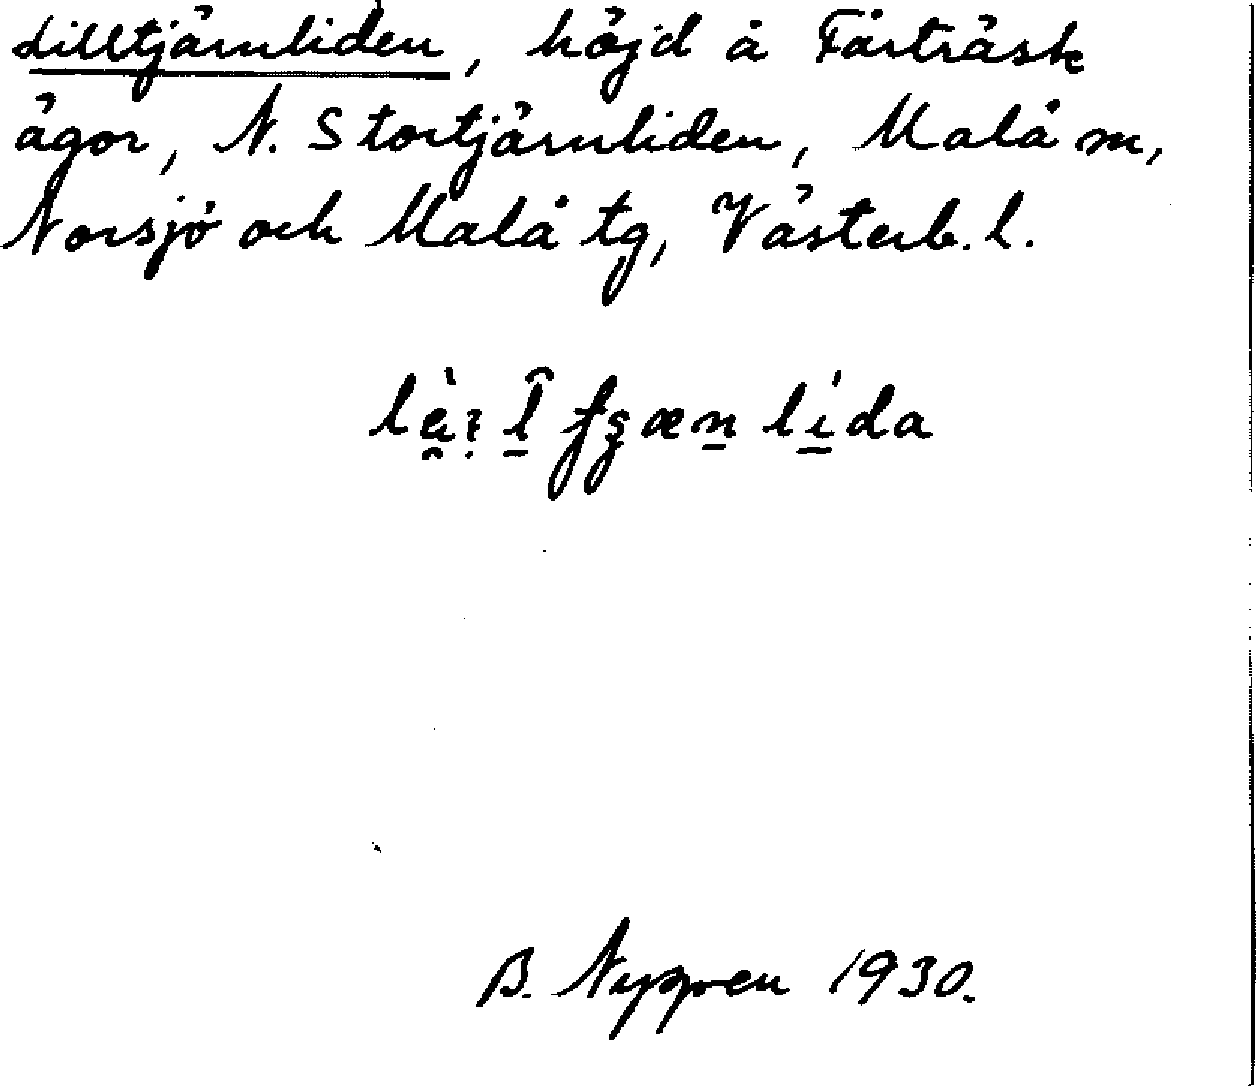 Lilltjärnliden, höjd å Fårträsk
ägor, N. Stortjärnliden, Malå sn,
Norsjö och Malå tg, Västerb. l.
B. Nygren 1930.